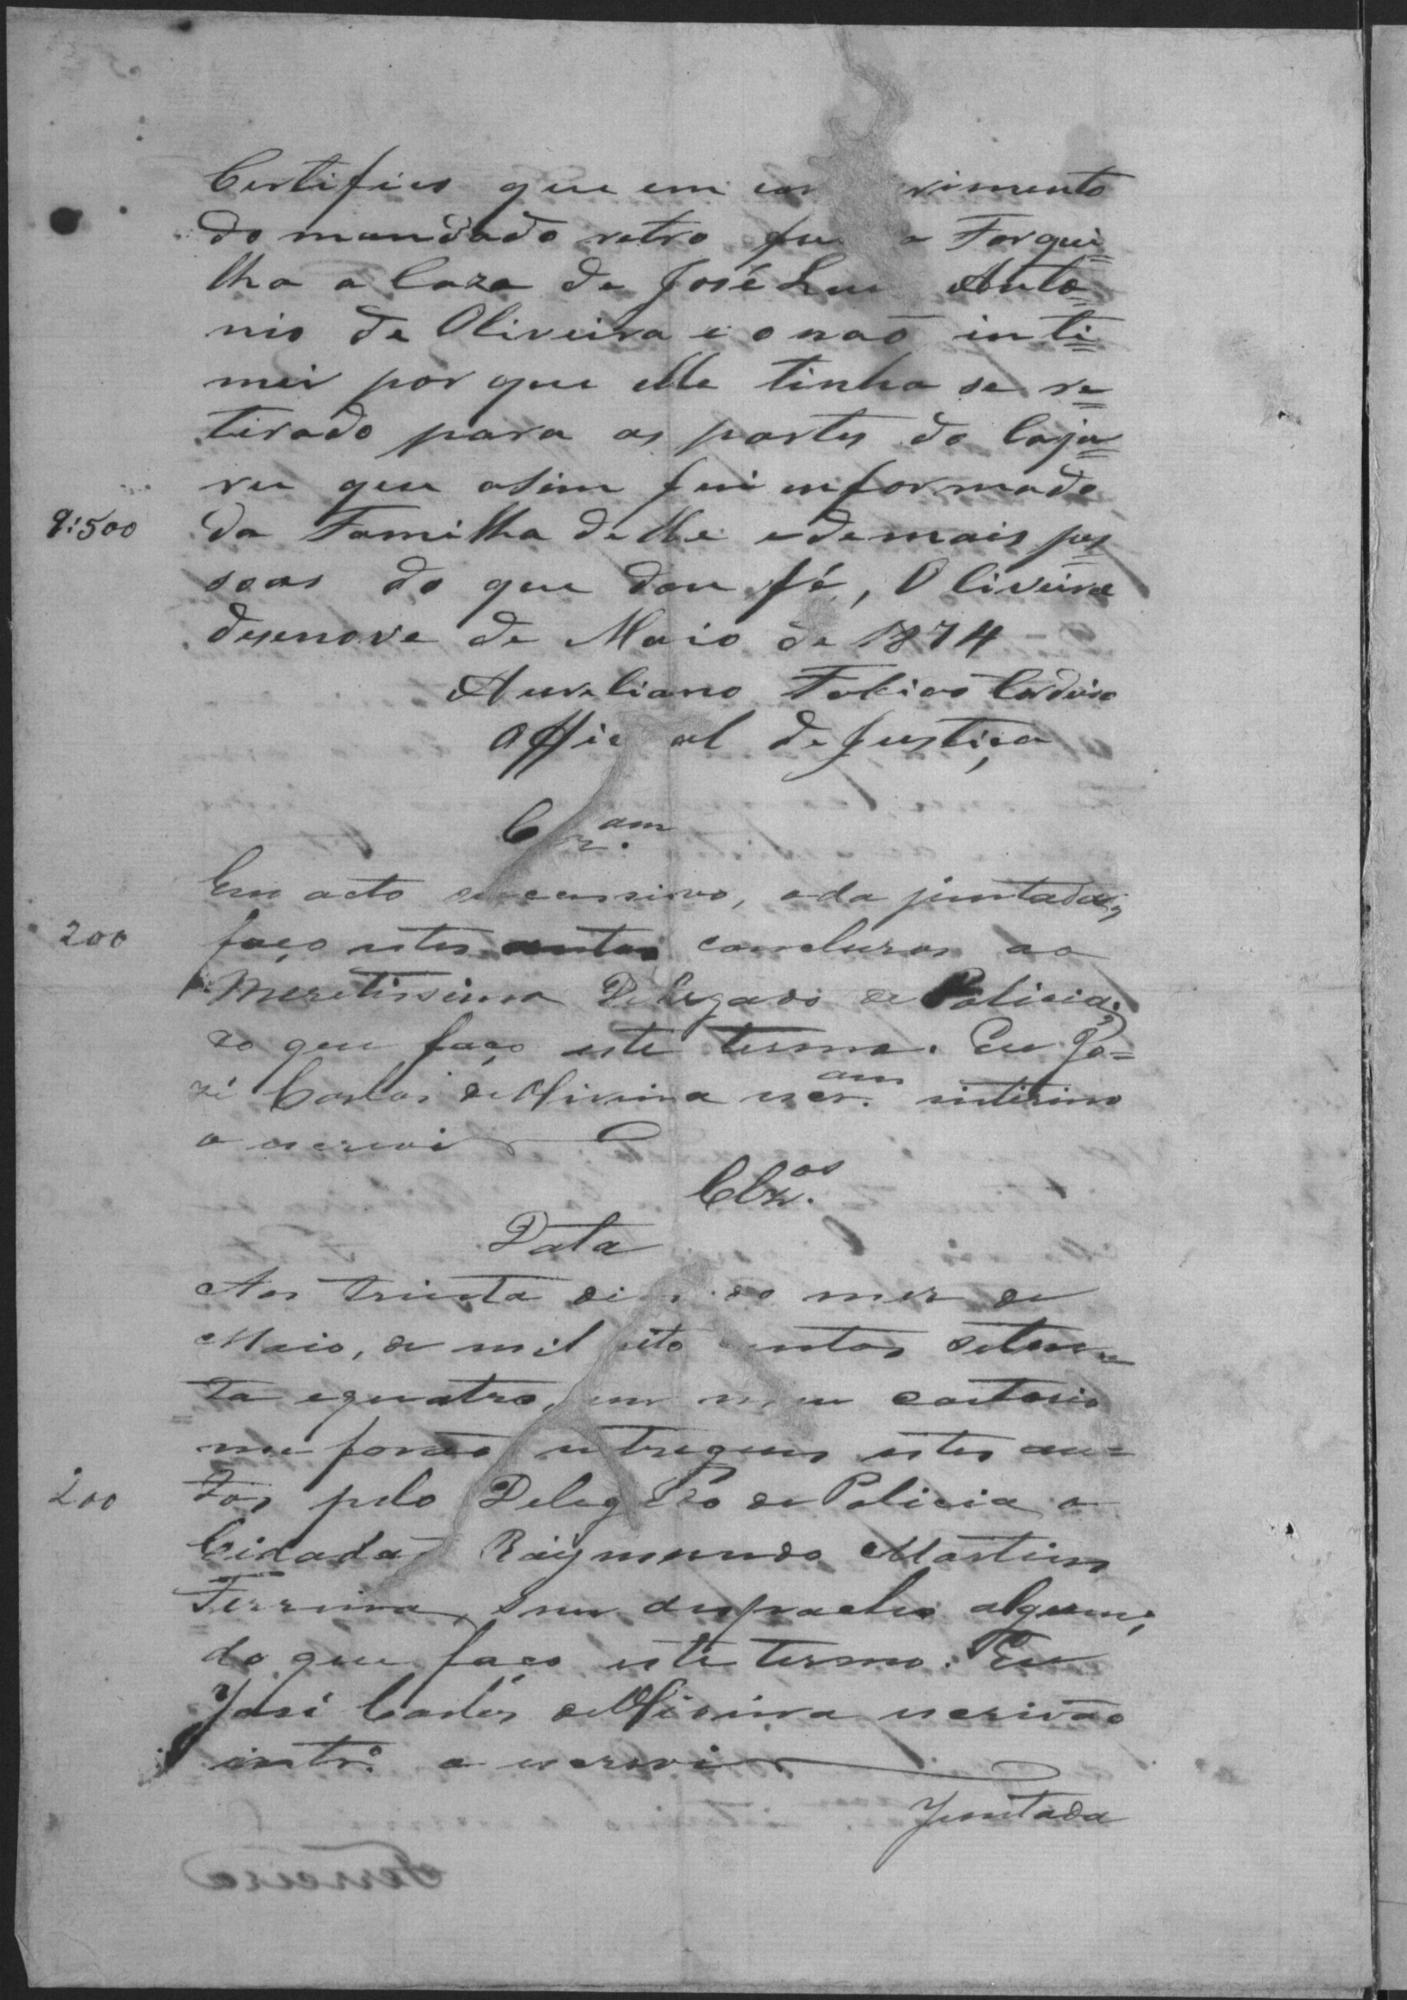 Certifico que em com rimento
do mandado retro fu a Forqui=
lha a Caza de José Lui Anto=
nio de Oliveira e o não inti=
mei por que elle tinha se re=
tirado para as partes do Caja=
ru que asim fui informado
9:500 da Familha delle e demais pes=
soas do que dou fé, Oliveira
desenove de Maio de 1874
Aureliano Tobias Cardoso
Offic al de Justiça
C z.am
Em acto successivo, a da juntada,
200 faço estes autos concluzos ao
Meretissimo Delegado de Policia;
do que faço este termo. Eu Jo=
zé Carlos de Oliveira escr.am interino
o escrevi
Clz.os
Data
Aos trinta dias do mez de
Maio, de mil oito centos seten=
ta e quatro, em meu cartorio
me forão entregues estes au=
200 tos pelo Delegado de Policia o
Cidadão Raymundo Martins
Ferreira, sem despacho algum;
do que faço este termo. Eu
José Carlos de Oliveira escrivão
intr.o o escrevi
Juntada